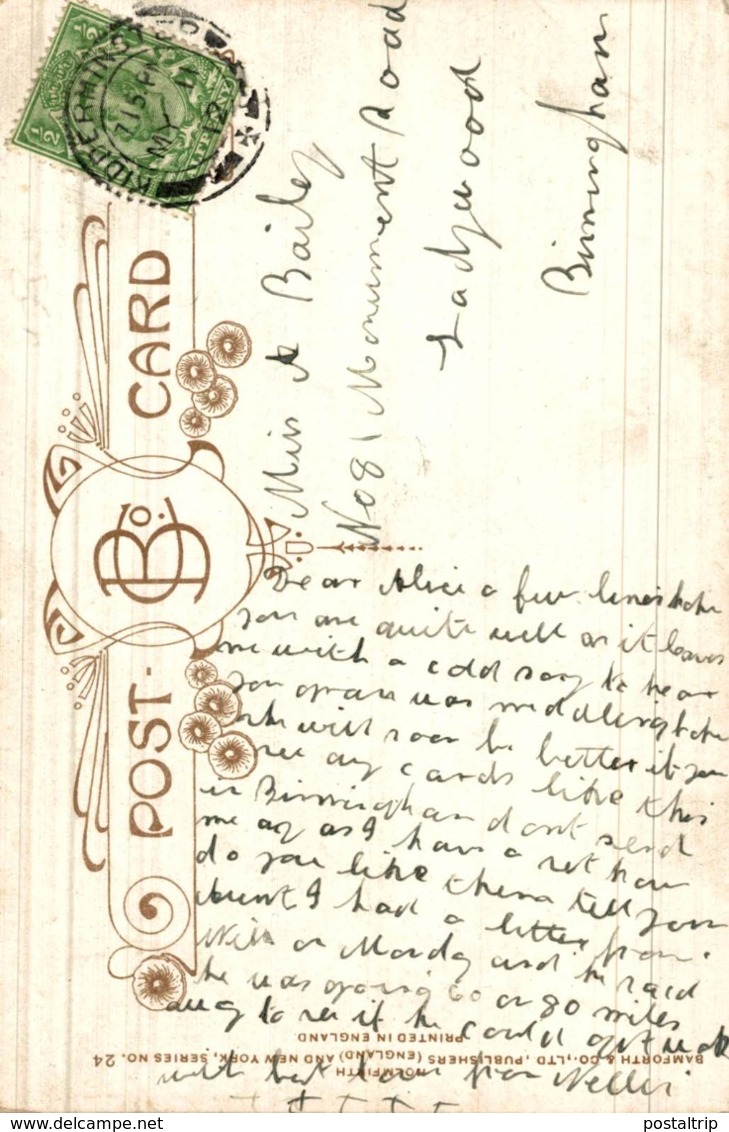 POST-CARD
B & Co.
KIDDERMINSTER
7.15 PM
MY 11
12
Miss A Bailey
No 81 Monument Road
Ladywood
Birmingham
Dear Alice a few lines hope
you are quite well as it leaves
me with a cold sorry to hear
your gran was middling hope
she will soon be better if you
see any cards like this
in Birmingham dont send
me any as I have a set how
do you like them tell your
Aunt I had a letter from
Will on Monday and he said
he was going 60 or 80 miles
away to see if he could get work
with best love from Nellie
+ + + + +
BAMFORTH & CO., LTD., PUBLISHERS (ENGLAND) AND NEW YORK, SERIES NO. 24
HOLMFIRTH
PRINTED IN ENGLAND
postaltrip